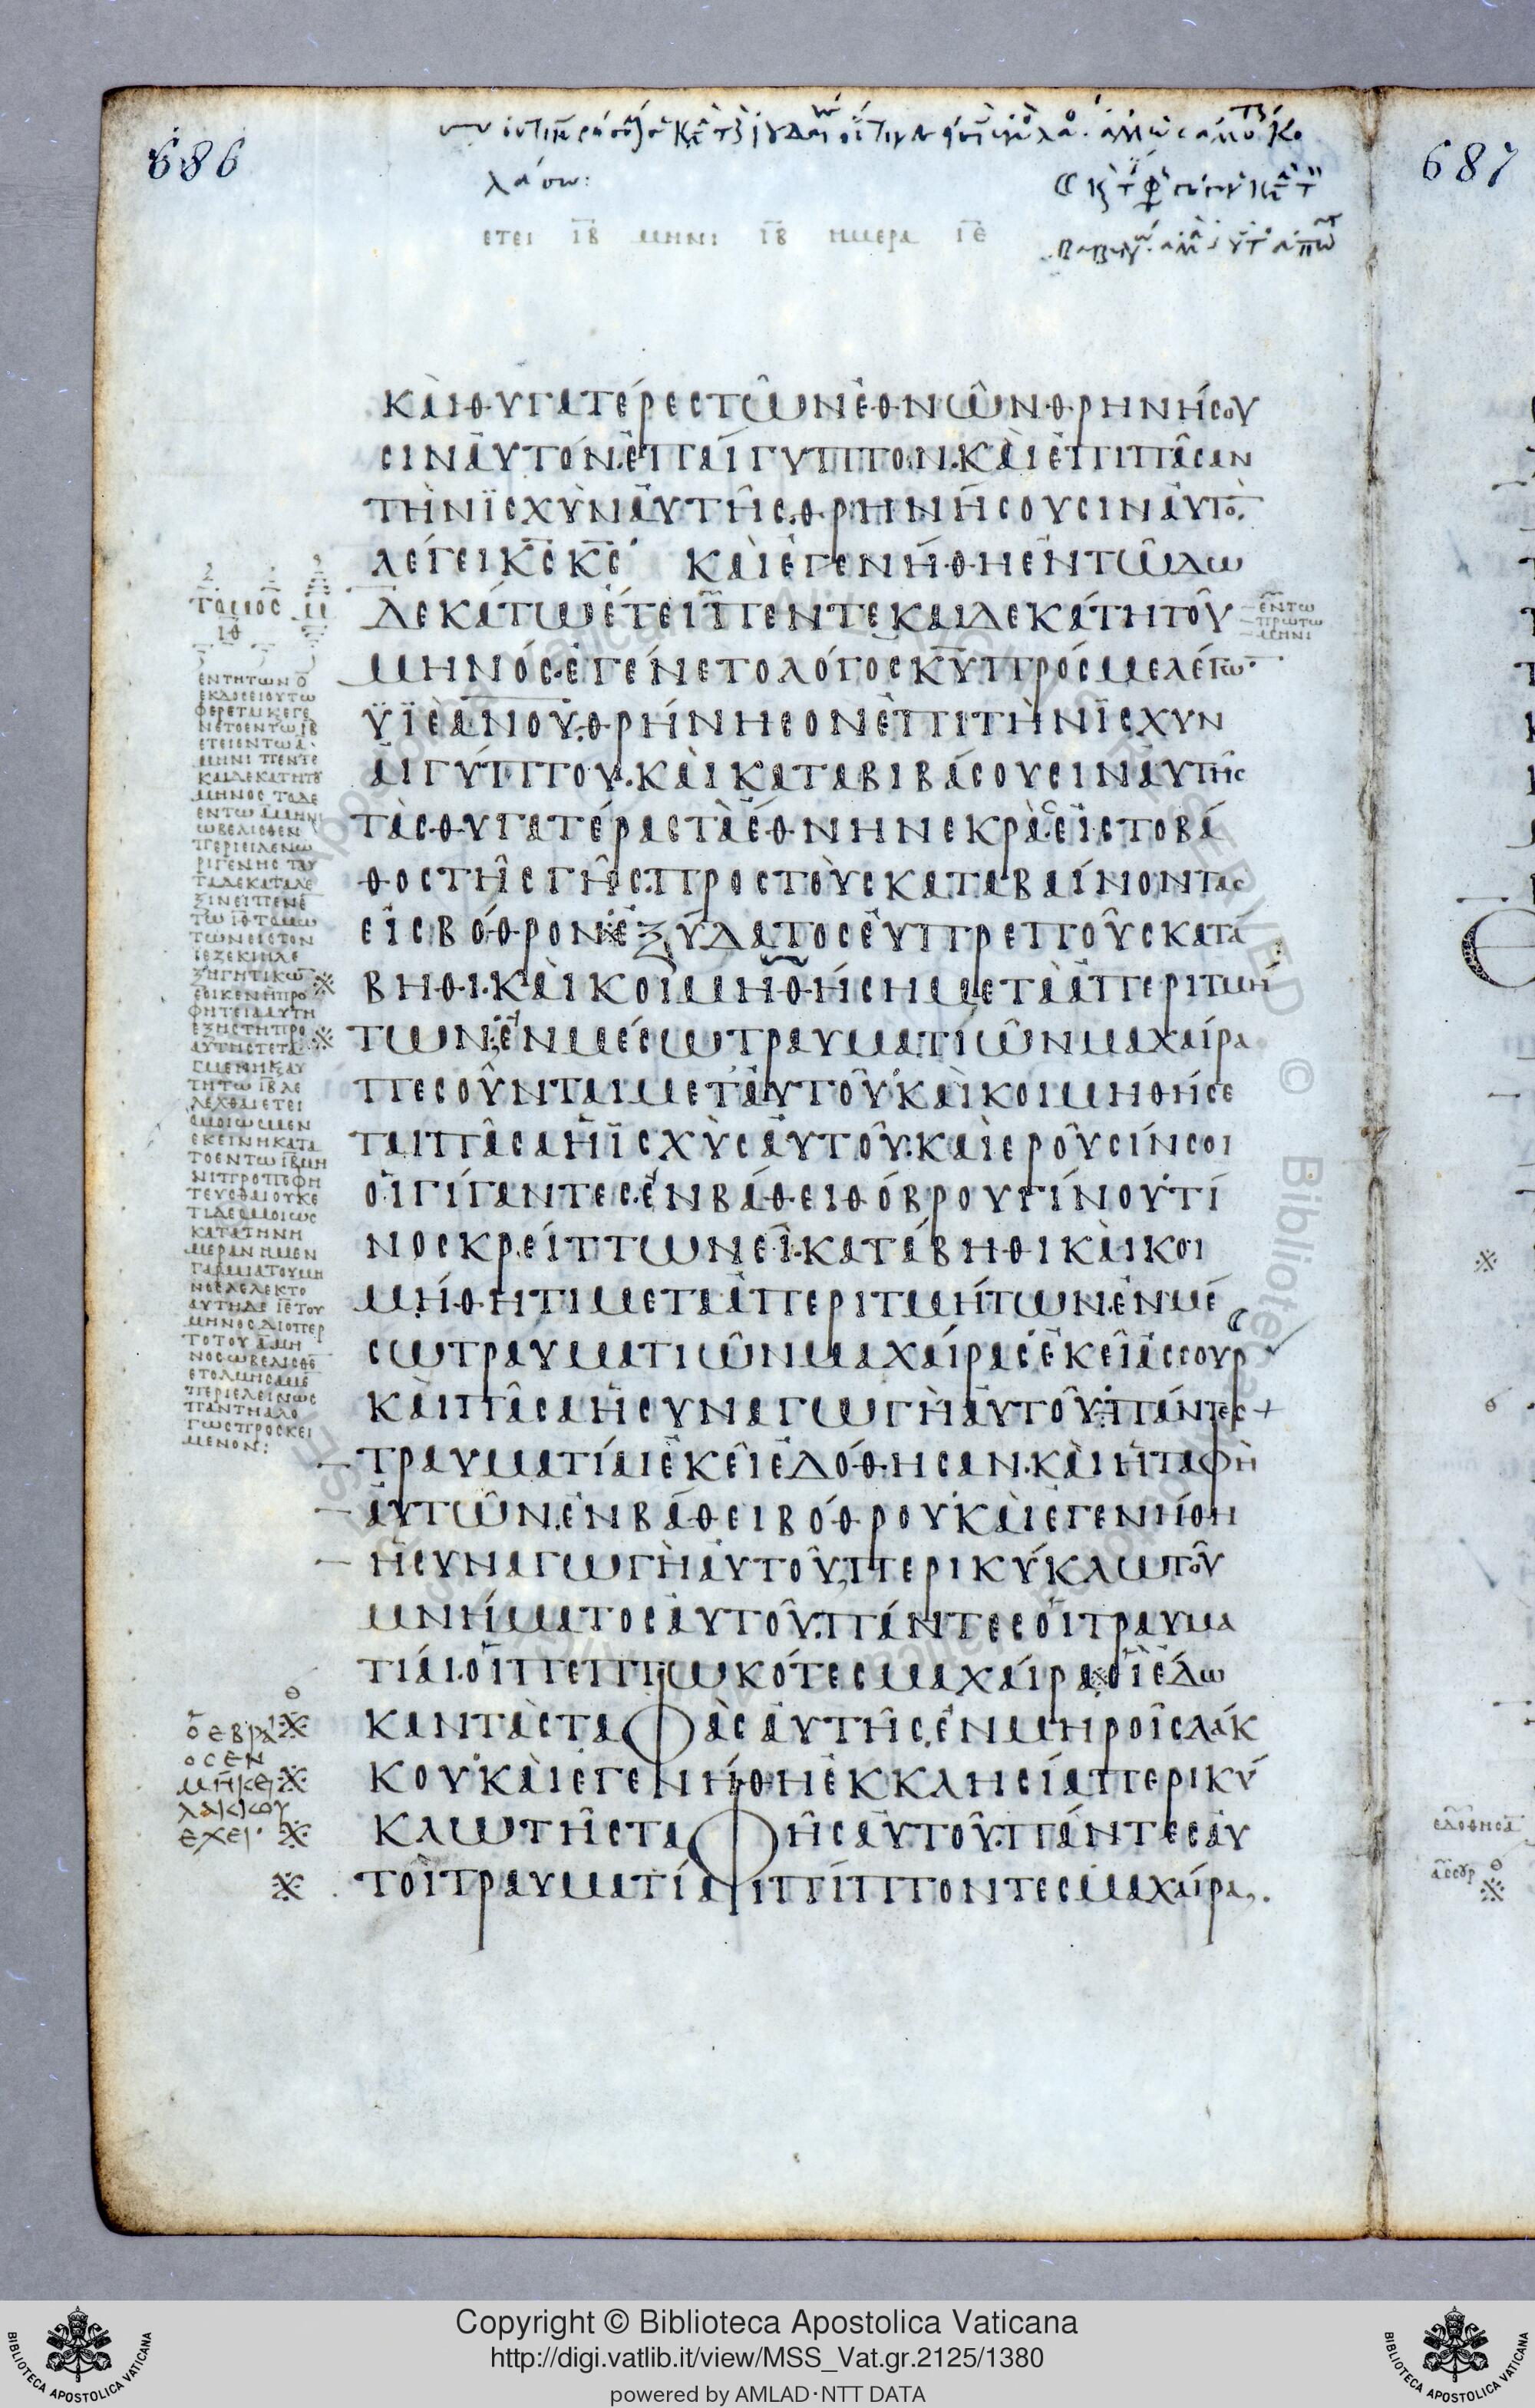 686
687
λάσω:
ετει ιβ μηνι ιβ ημερα ιε
ΚΑῚΘΥΓΑΤΈΡΕΣΤΩ͂ΝἘΘΝΩ͂ΝΘΡΗΝΉΣΟΥ
ΣΙΝἈΥΤΌΝ.ἘΠΑΊΓΥΠΤΟΝ.ΚΑῚἘΠΙΠΑ͂ΣΑΝ
ΤῊΝΪΣΧῪΝἈΥΤΗ͂Σ.ΘΡΗΝΉΣΟΥΣΙΝἈΥΤΟ̅.
ΛΈΓΕΙΚ̅Σ̅Κ̅Σ̅· ΚΑῚἘΓΕΝΉΘΗἘΝΤΩ͂ΔΩ
ΔΕΚΆΤΩἜΤΕΙΠΕΝΤΕΚΑΙΔΕΚΆΤΗΤΟΥ͂
ΜΗΝΌΣ.ἘΓΈΝΕΤΟΛΌΓΟΣΚ̅Υ̅ΠΡΌΣΜΕΛΈΓΩ̅·
ΫΪΕΑ̅Ν̅Ο̅Υ̅.ΘΡΉΝΗΣΟΝἘΠΙΤῊΝΪΣΧΥΝ
ἈΙΓΎΠΤΟΥ.ΚΑῚΚΑΤΑΒΙΒΆΣΟΥΣΙΝἈΥΤΗ͂Σ
ΤᾺΣΘΥΓΑΤΈΡΑΣΤᾺἜΘΝΗΝΕΚΡᾺΣἘΙΣΤΟΒΆ
ΘΟΣΤΗ͂ΣΓΗ͂Σ.ΠΡΟΣΤΟῪΣΚΑΤΑΒΑΊΝΟΝΤΑΣ
ΕἸΣΒΌΘΡΟΝ※ἘΞΎΔΑΤΟΣἘΥΠΡΕΠΟΥ͂ΣΚΑΤΆ
ΒΗΘΙ.ΚΑῚΚΟΙΜΗΘΉΣΗΜΕΤᾺἈΠΕΡΙΤΜΉ
ΤΩΝ.ἘΝΜΈΣΩΤΡΑΥΜΑΤΙΩ͂ΝΜΑΧΑΊΡΑ
ΠΕΣΟΥ͂ΝΤΑΙΜΕΤἈΥΤΟΥ͂·ΚΑῚΚΟΙΜΗΘΉΣΕ
ΤΑΙΠΑ͂ΣΑἩΪΣΧῪΣἈΥΤΟΥ͂.ΚΑῚΕΡΟΥ͂ΣΊΝΣΟΙ
ὉΙΓΊΓΑΝΤΕΣ.ἘΝΒΆΘΕΙΘΌΒΡΟΥΓΊΝΟΥ·ΤΊ
ΝΟΣΚΡΕΊΤΤΩΝΕἾ.ΚΑΤΆΒΗΘΙΚΑῚΚΟΙ
ΜΉΘΗΤΙΜΕΤΑἈΠΕΡΙΤΜΉΤΩΝ.ἘΝΜΈ
ΣΩΤΡΑΥΜΑΤΙΩ͂ΝΜΑΧΑΊΡΑΣ·ἘΚΕΙ͂ἈΣΣΟΥΡ
ΚΑῚΠΑ͂ΣΑἩΣΥΝΑΓΩΓῊἈΥΤΟΥ͂·ΠΆΝΤΕΣ
ΤΡΑΥΜΑΤΊΑΙἘΚΕΙ͂ἘΔΌΘΗΣΑΝ.ΚΑῚἩΤΑΦῊ
ἈΥΤΩ͂Ν.ἘΝΒΆΘΕΙΒΌΘΡΟΥ·ΚΑῚἘΓΕΝΉΘΗ
ἩΣΥΝΑΓΩΓῊἈΥΤΟΥ͂.ΠΕΡΙΚΎΚΛΩΤΟΥ͂
ΜΝΉΜΑΤΟΣἈΥΤΟΥ͂.ΠΆΝΤΕΣὉΙΤΡΑΥΜΑ
ΤΊΑΙ.ὉΙΠΕΠΤΩΚΌΤΕΣΜΑΧΑΊΡΑ※ὉΙἘΔΩ
ΚΑΝΤᾺΣΤΑΦᾺΣἈΥΤΗ͂Σ.ἘΝΜΗΡΟΙ͂ΣΛΆΚ
ΚΟΥ·ΚΑῚἘΓΕΝΉΘΗἘΚΚΛΗΣΊΑΠΕΡΙΚΎ
ΚΛΩΤΗ͂ΣΤΑΦΗ͂ΣἈΥΤΟΥ͂.ΠΆΝΤΕΣἈΥ
ΤΟῚΤΡΑΥΜΑΤΊΑΙΠΊΠΤΟΝΤΕΣΜΑΧΑΊΡΑ,.
ΤΟΜΟΣ
ΙΘ
ΕΝΤΩ
ΠΡΩΤΩ
ΜΗΝΙ
ΕΝΤΗΤΩΝΟ
ΕΚΔΟΣΕΙΟΥΤΩ
ΦΕΡΕΤΑΙΚΕΓΕ
ΝΕΤΟΕΝΤΩΙΒ
ΕΤΕΙΕΝΤΩΑ
ΜΗΝΙΠΕΝΤΕ
ΚΑΙΔΕΚΑΤΗΤΟΥ
ΜΗΝΟΣΤΟΔΕ
ΕΝΤΩΑΜΗΝΙ
ΩΒΕΛΙΣΘΕΝ
ΠΕΡΙΕΙΛΕΝΩ
ΡΙΓΕΝΗΣΤΑΥ
ΤΑΔΕΚΑΤΑΛΕ
ΞΙΝΕΙΠΕΝΕ
ΤΩΙΘΤΟΜΩ
ΤΩΝΕΙΣΤΟΝ
ΙΕΖΕΚΙΗΛΕ
ΞΗΓΗΤΙΚΩ̅
ΕΟΙΚΕΝΗΠΡΟ
ΦΗΤΕΙΑΑΥΤΗ
ΕΞΗΣΤΗΠΡΟ
ΑΥΤΗΣΤΕΤΑ
ΓΜΕΝΗΚΑΥ
ΤΗΤΩΙΒΛΕ
ΛΕΧΘΑΙΕΤΕΙ
ΟΜΟΙΩΣΜΕΝ
ΕΚΕΙΝΗΚΑΤΑ
ΤΟΕΝΤΩΙΒΜΗ
ΝΙΠΡΟΠΕΦΗ
ΤΕΥΣΘΑΙΟΥΚΕ
ΤΙΔΕΟΜΟΙΩΣ
ΚΑΤΑΤΗΝΗ
ΜΕΡΑΝΗΜΕΝ
ΓΑΡΜΙΑΤΟΥΜΗ
ΝΟΣΛΕΛΕΚΤΟ
ΑΥΤΗΔΕΙΕΤΟΥ
ΜΗΝΟΣΔΙΟΠΕΡ
ΤΟΤΟΥΑΜΗ
ΝΟΣΩΒΕΛΙΣΘΕ̅
ΕΤΟΛΜΗΣΑΜΕ
ΠΕΡΙΕΛΕΙΝΩΣ
ΠΑΝΤΗΑΛΟ
ΓΩΣΠΡΟΣΚΕΙ
ΜΕΝΟΝ:
Ὁ ΕΒΡΑΙ
ΟΣ ΕΝ
ΜΗΚΕΙ
ΛΑΚΚΟΥ
ΕΧΕΙ·
Copyright © Biblioteca Apostolica Vaticana
http://digi.vatlib.it/view/MSS_Vat.gr.2125/1380
powered by AMLAD·NTT DATA
BIBLIOTECA APOSTOLICA VATICANA
BIBLIOTECA APOSTOLICA VATICANA